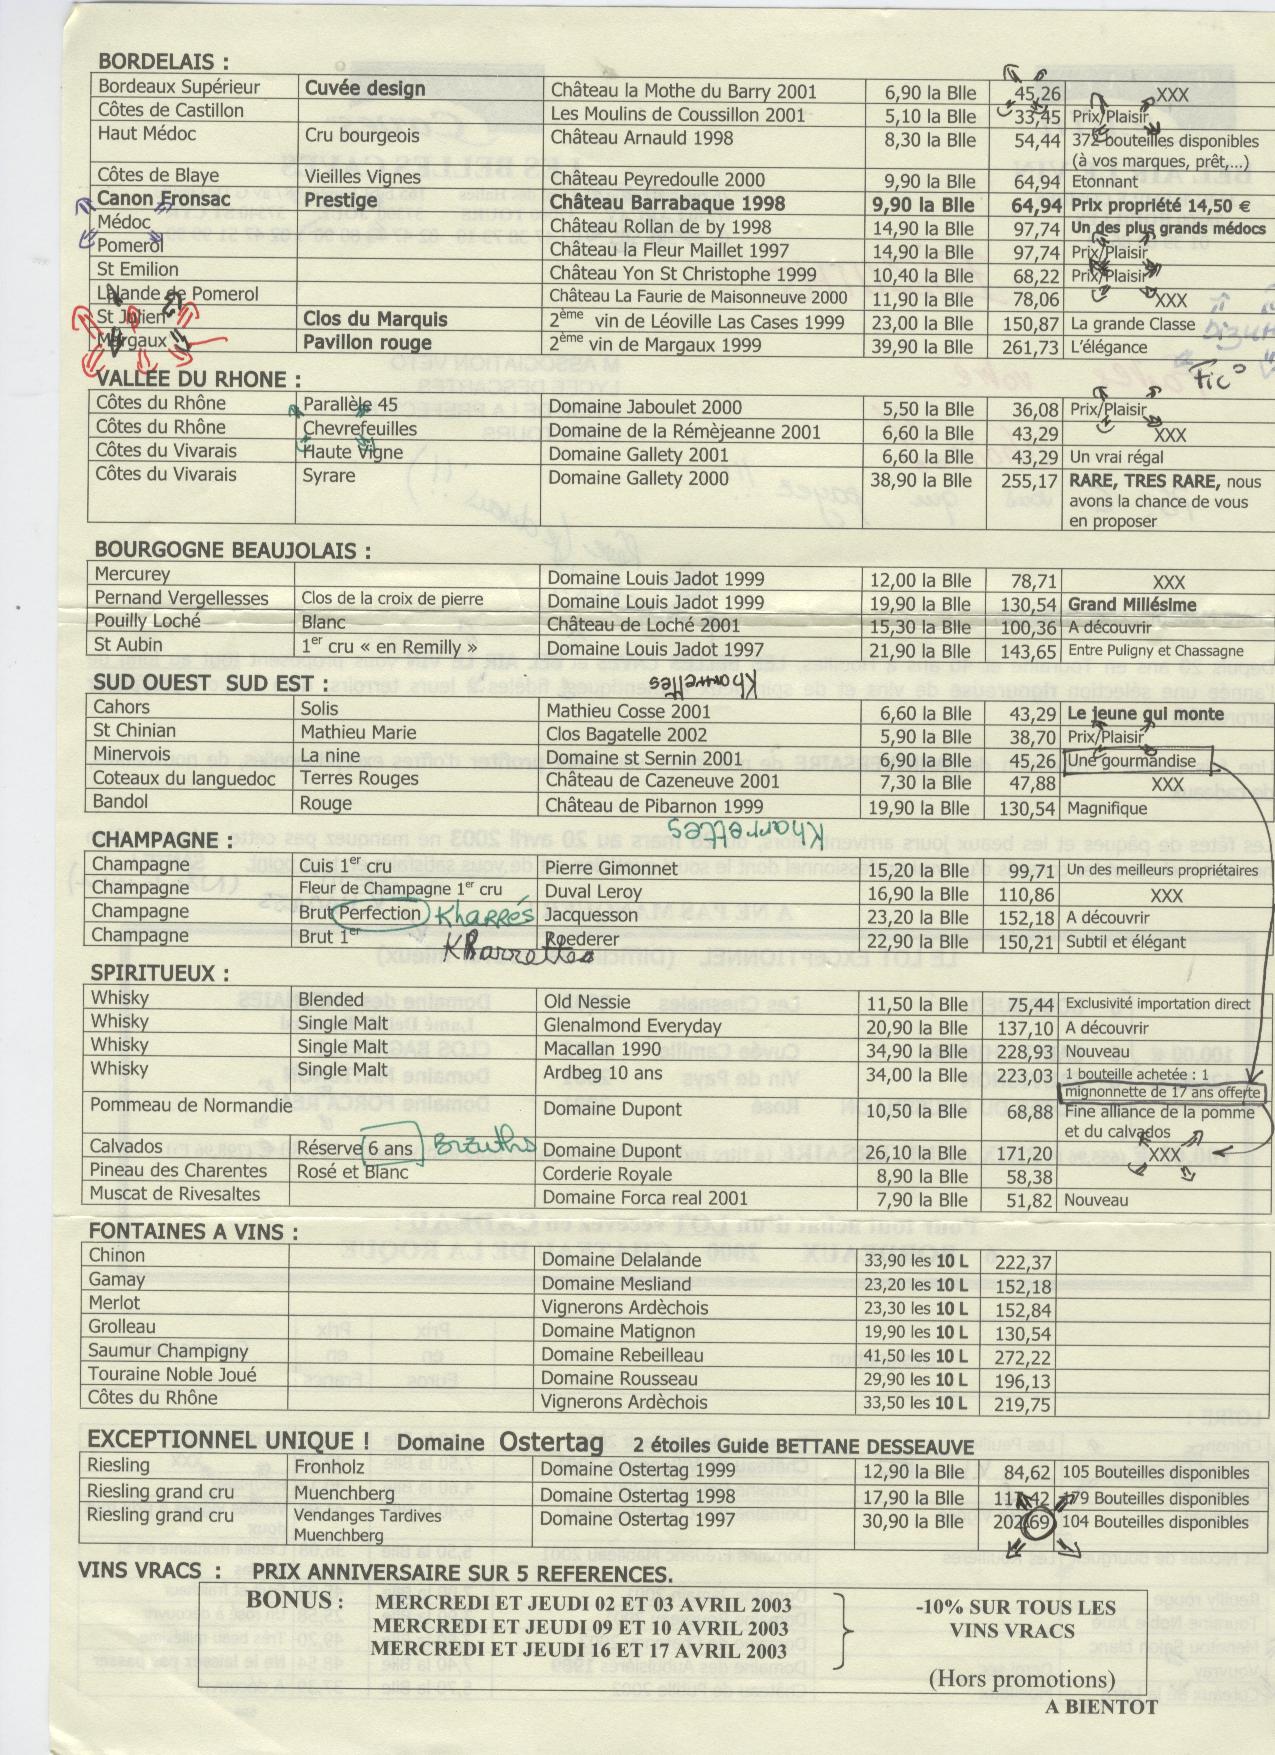 BORDELAIS :
Bordeaux Supérieur Cuvée design Château la Mothe du Barry 2001 6,90 la Blle 45,26 XXX
Côtes de Castillon Les Moulins de Coussillon 2001 5,10 la Blle 33,45 Prix/Plaisir
Haut Médoc Cru bourgeois Château Arnauld 1998 8,30 la Blle 54,44 372 bouteilles disponibles
(à vos marques, prêt,...)
Côtes de Blaye Vieilles Vignes Château Peyredoulle 2000 9,90 la Blle 64,94 Etonnant
Canon Fronsac Prestige Château Barrabaque 1998 9,90 la Blle 64,94 Prix propriété 14,50 €
Médoc Château Rollan de by 1998 14,90 la Blle 97,74 Un des plus grands médocs
Pomerol Château la Fleur Maillet 1997 14,90 la Blle 97,74 Prix/Plaisir
St Emilion Château Yon St Christophe 1999 10,40 la Blle 68,22 Prix/Plaisir
Lalande de Pomerol Château La Faurie de Maisonneuve 2000 11,90 la Blle 78,06 XXX
St Julien Clos du Marquis 2ème vin de Léoville Las Cases 1999 23,00 la Blle 150,87 La grande Classe
Margaux Pavillon rouge 2ème vin de Margaux 1999 39,90 la Blle 261,73 L'élégance
VALLEE DU RHONE :
Côtes du Rhône Parallèle 45 Domaine Jaboulet 2000 5,50 la Blle 36,08 Prix/Plaisir
Côtes du Rhône Chevrefeuilles Domaine de la Rémèjeanne 2001 6,60 la Blle 43,29 XXX
Côtes du Vivarais Haute Vigne Domaine Gallety 2001 6,60 la Blle 43,29 Un vrai régal
Côtes du Vivarais Syrare Domaine Gallety 2000 38,90 la Blle 255,17 RARE, TRES RARE, nous
avons la chance de vous
en proposer
BOURGOGNE BEAUJOLAIS :
Mercurey Domaine Louis Jadot 1999 12,00 la Blle 78,71 XXX
Pernand Vergellesses Clos de la croix de pierre Domaine Louis Jadot 1999 19,90 la Blle 130,54 Grand Millésime
Pouilly Loché Blanc Château de Loché 2001 15,30 la Blle 100,36 A découvrir
St Aubin 1er cru « en Remilly » Domaine Louis Jadot 1997 21,90 la Blle 143,65 Entre Puligny et Chassagne
SUD OUEST SUD EST :
Cahors Solis Mathieu Cosse 2001 6,60 la Blle 43,29 Le jeune qui monte
St Chinian Mathieu Marie Clos Bagatelle 2002 5,90 la Blle 38,70 Prix/Plaisir
Minervois La nine Domaine et Sernin 2001 6,90 la Blle 45,26 Une gourmandise
Coteaux du languedoc Terres Rouges Château de Cazeneuve 2001 7,30 la Blle 47,88 XXX
Bandol Rouge Château de Pibarnon 1999 19,90 la Blle 130,54 Magnifique
Kharrettes
CHAMPAGNE :
Champagne Cuis 1er cru Pierre Gimonnet 15,20 la Blle 99,71 Un des meilleurs propriétaires
Champagne Fleur de Champagne 1er cru Duval Leroy 16,90 la Blle 110,86 XXX
Champagne Brut Perfection Kharrés Jacquesson 23,20 la Blle 152,18 A découvrir
Champagne Brut 1er Roederer 22,90 la Blle 150,21 Subtil et élégant
SPIRITUEUX :
Whisky Blended Old Nessie 11,50 la Blle 75,44 Exclusivité importation direct
Whisky Single Malt Glenalmond Everyday 20,90 la Blle 137,10 A découvrir
Whisky Single Malt Macallan 1990 34,90 la Blle 228,93 Nouveau
Whisky Single Malt Ardbeg 10 ans 34,00 la Blle 223,03 1 bouteille achetée : 1
mignonnette de 17 ans offerte
Pommeau de Normandie Domaine Dupont 10,50 la Blle 68,88 Fine alliance de la pomme
et du calvados
Calvados Réserve 6 ans Domaine Dupont 26,10 la Blle 171,20 XXX
Pineau des Charentes Rosé et Blanc Corderie Royale 8,90 la Blle 58,38
Muscat de Rivesaltes Domaine Forca real 2001 7,90 la Blle 51,82 Nouveau
FONTAINES A VINS :
Chinon Domaine Delalande 33,90 les 10 L 222,37
Gamay Domaine Mesliand 23,20 les 10 L 152,18
Merlot Vignerons Ardèchois 23,30 les 10 L 152,84
Grolleau Domaine Matignon 19,90 les 10 L 130,54
Saumur Champigny Domaine Rebeilleau 41,50 les 10 L 272,22
Touraine Noble Joué Domaine Rousseau 29,90 les 10 L 196,13
Côtes du Rhône Vignerons Ardèchois 33,50 les 10 L 219,75
EXCEPTIONNEL UNIQUE ! Domaine Ostertag 2 étoiles Guide BETTANE DESSEAUVE
Riesling Fronholz Domaine Ostertag 1999 12,90 la Blle 84,62 105 Bouteilles disponibles
Riesling grand cru Muenchberg Domaine Ostertag 1998 17,90 la Blle 117,42 179 Bouteilles disponibles
Riesling grand cru Vendanges Tardives Domaine Ostertag 1997 30,90 la Blle 202,69 104 Bouteilles disponibles
Muenchberg
VINS VRACS : PRIX ANNIVERSAIRE SUR 5 REFERENCES.
BONUS : MERCREDI ET JEUDI 02 ET 03 AVRIL 2003 -10% SUR TOUS LES
MERCREDI ET JEUDI 09 ET 10 AVRIL 2003 VINS VRACS
MERCREDI ET JEUDI 16 ET 17 AVRIL 2003
(Hors promotions)
A BIENTOT